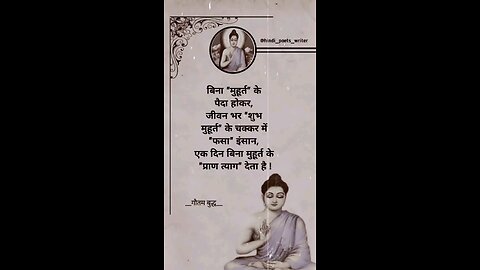 @hindi_poets_writer
बिना "मुहूर्त" के
पैदा होकर,
जीवन भर "शुभ
मुहूर्त" के चक्कर में
"फसा" इंसान,
एक दिन बिना मुहूर्त के
"प्राण त्याग" देता है !
__गौतम बुद्ध__